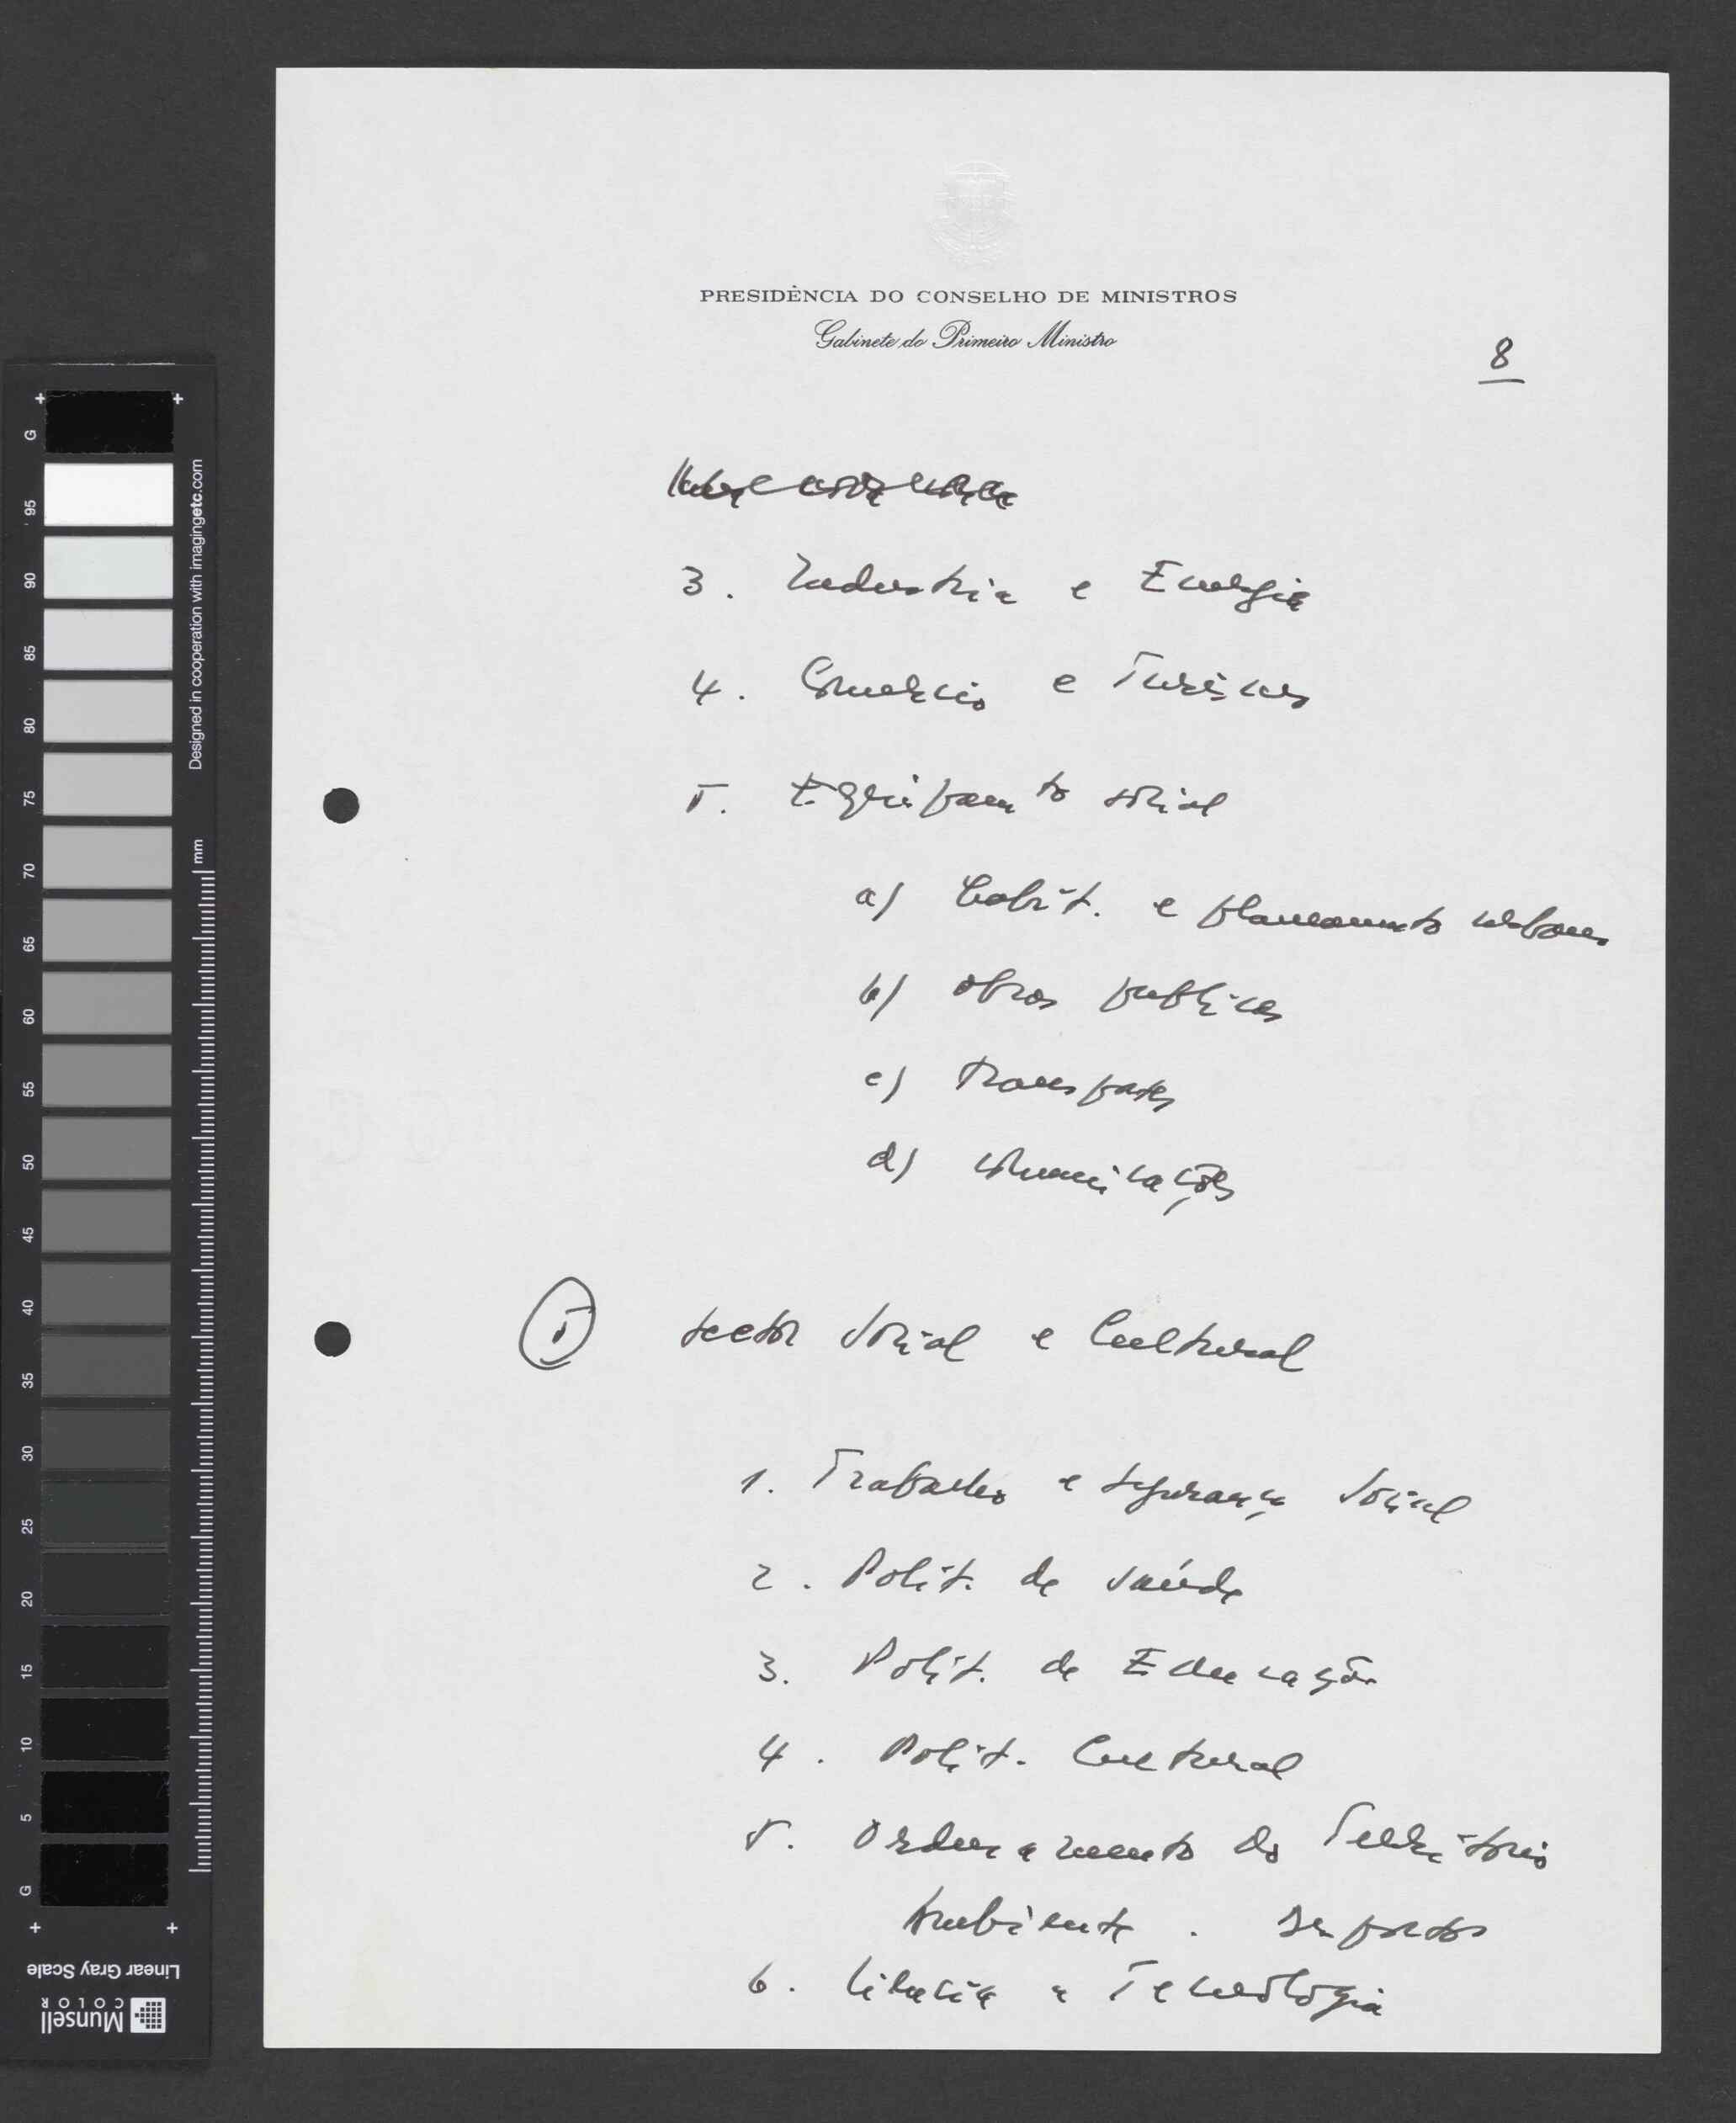 PRESIDÊNCIA DO CONSELHO DE MINISTROS
Gabinete do Primeiro Ministro
8
3. Industria e Energia
4. Comercio e Turismo
5. Equipamto social
a) habit. e planeamento urbano
b) obras publicas
c) transportes
d) comunicações
5 Sector Social e Cultural
1. Trabalho e Segurança Social
2. Polit. de saúde
3. Polit. de Educação
4. Polit. Cultural
5. Ordenamento do Território
Ambiente. Desportos
6. Ciência e Tecnologia
G 95 90 85 80 75 70 65 60 55 50 45 40 35 30 25 20 15 10 5 G
Designed in cooperation with imagingetc.com
mm
Linear Gray Scale
Munsell
COLOR